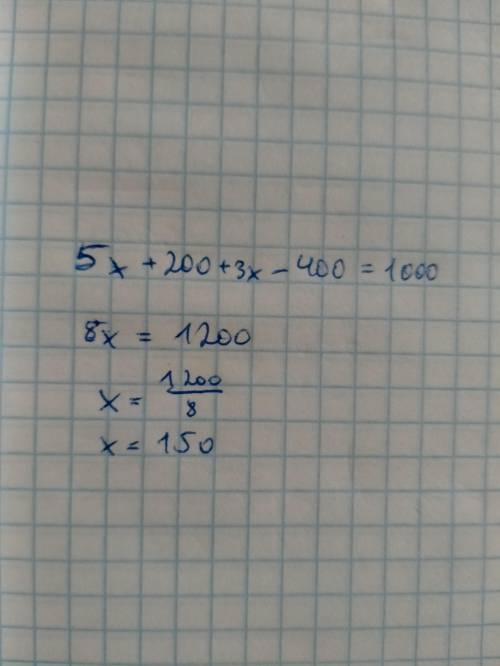 5x + 200 + 3x - 400 = 1000
8x = 1200
x = 1200/8
x = 150